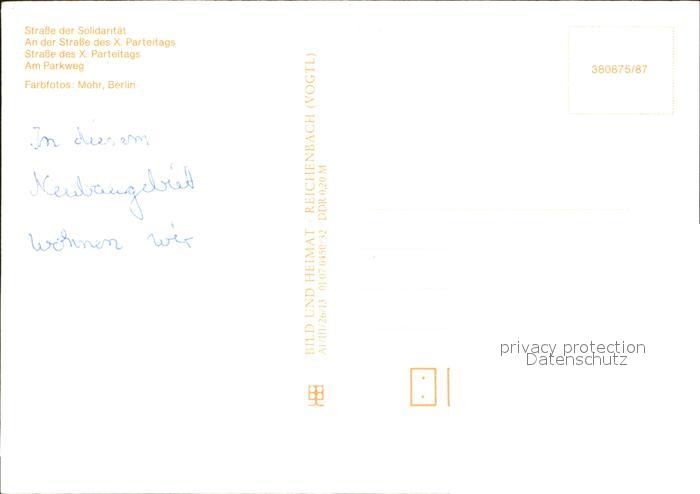 Straße der Solidarität
An der Straße des X. Parteitags
Straße des X. Parteitags
Am Parkweg
Farbfotos: Mohr, Berlin
In diesem
Neubaugebiet
wohnen wir
BILD UND HEIMAT · REICHENBACH (VOGTL)
A1/III/26/13 01 07 0450/32 DDR 0,20 M
380875/87
privacy protection
Datenschutz